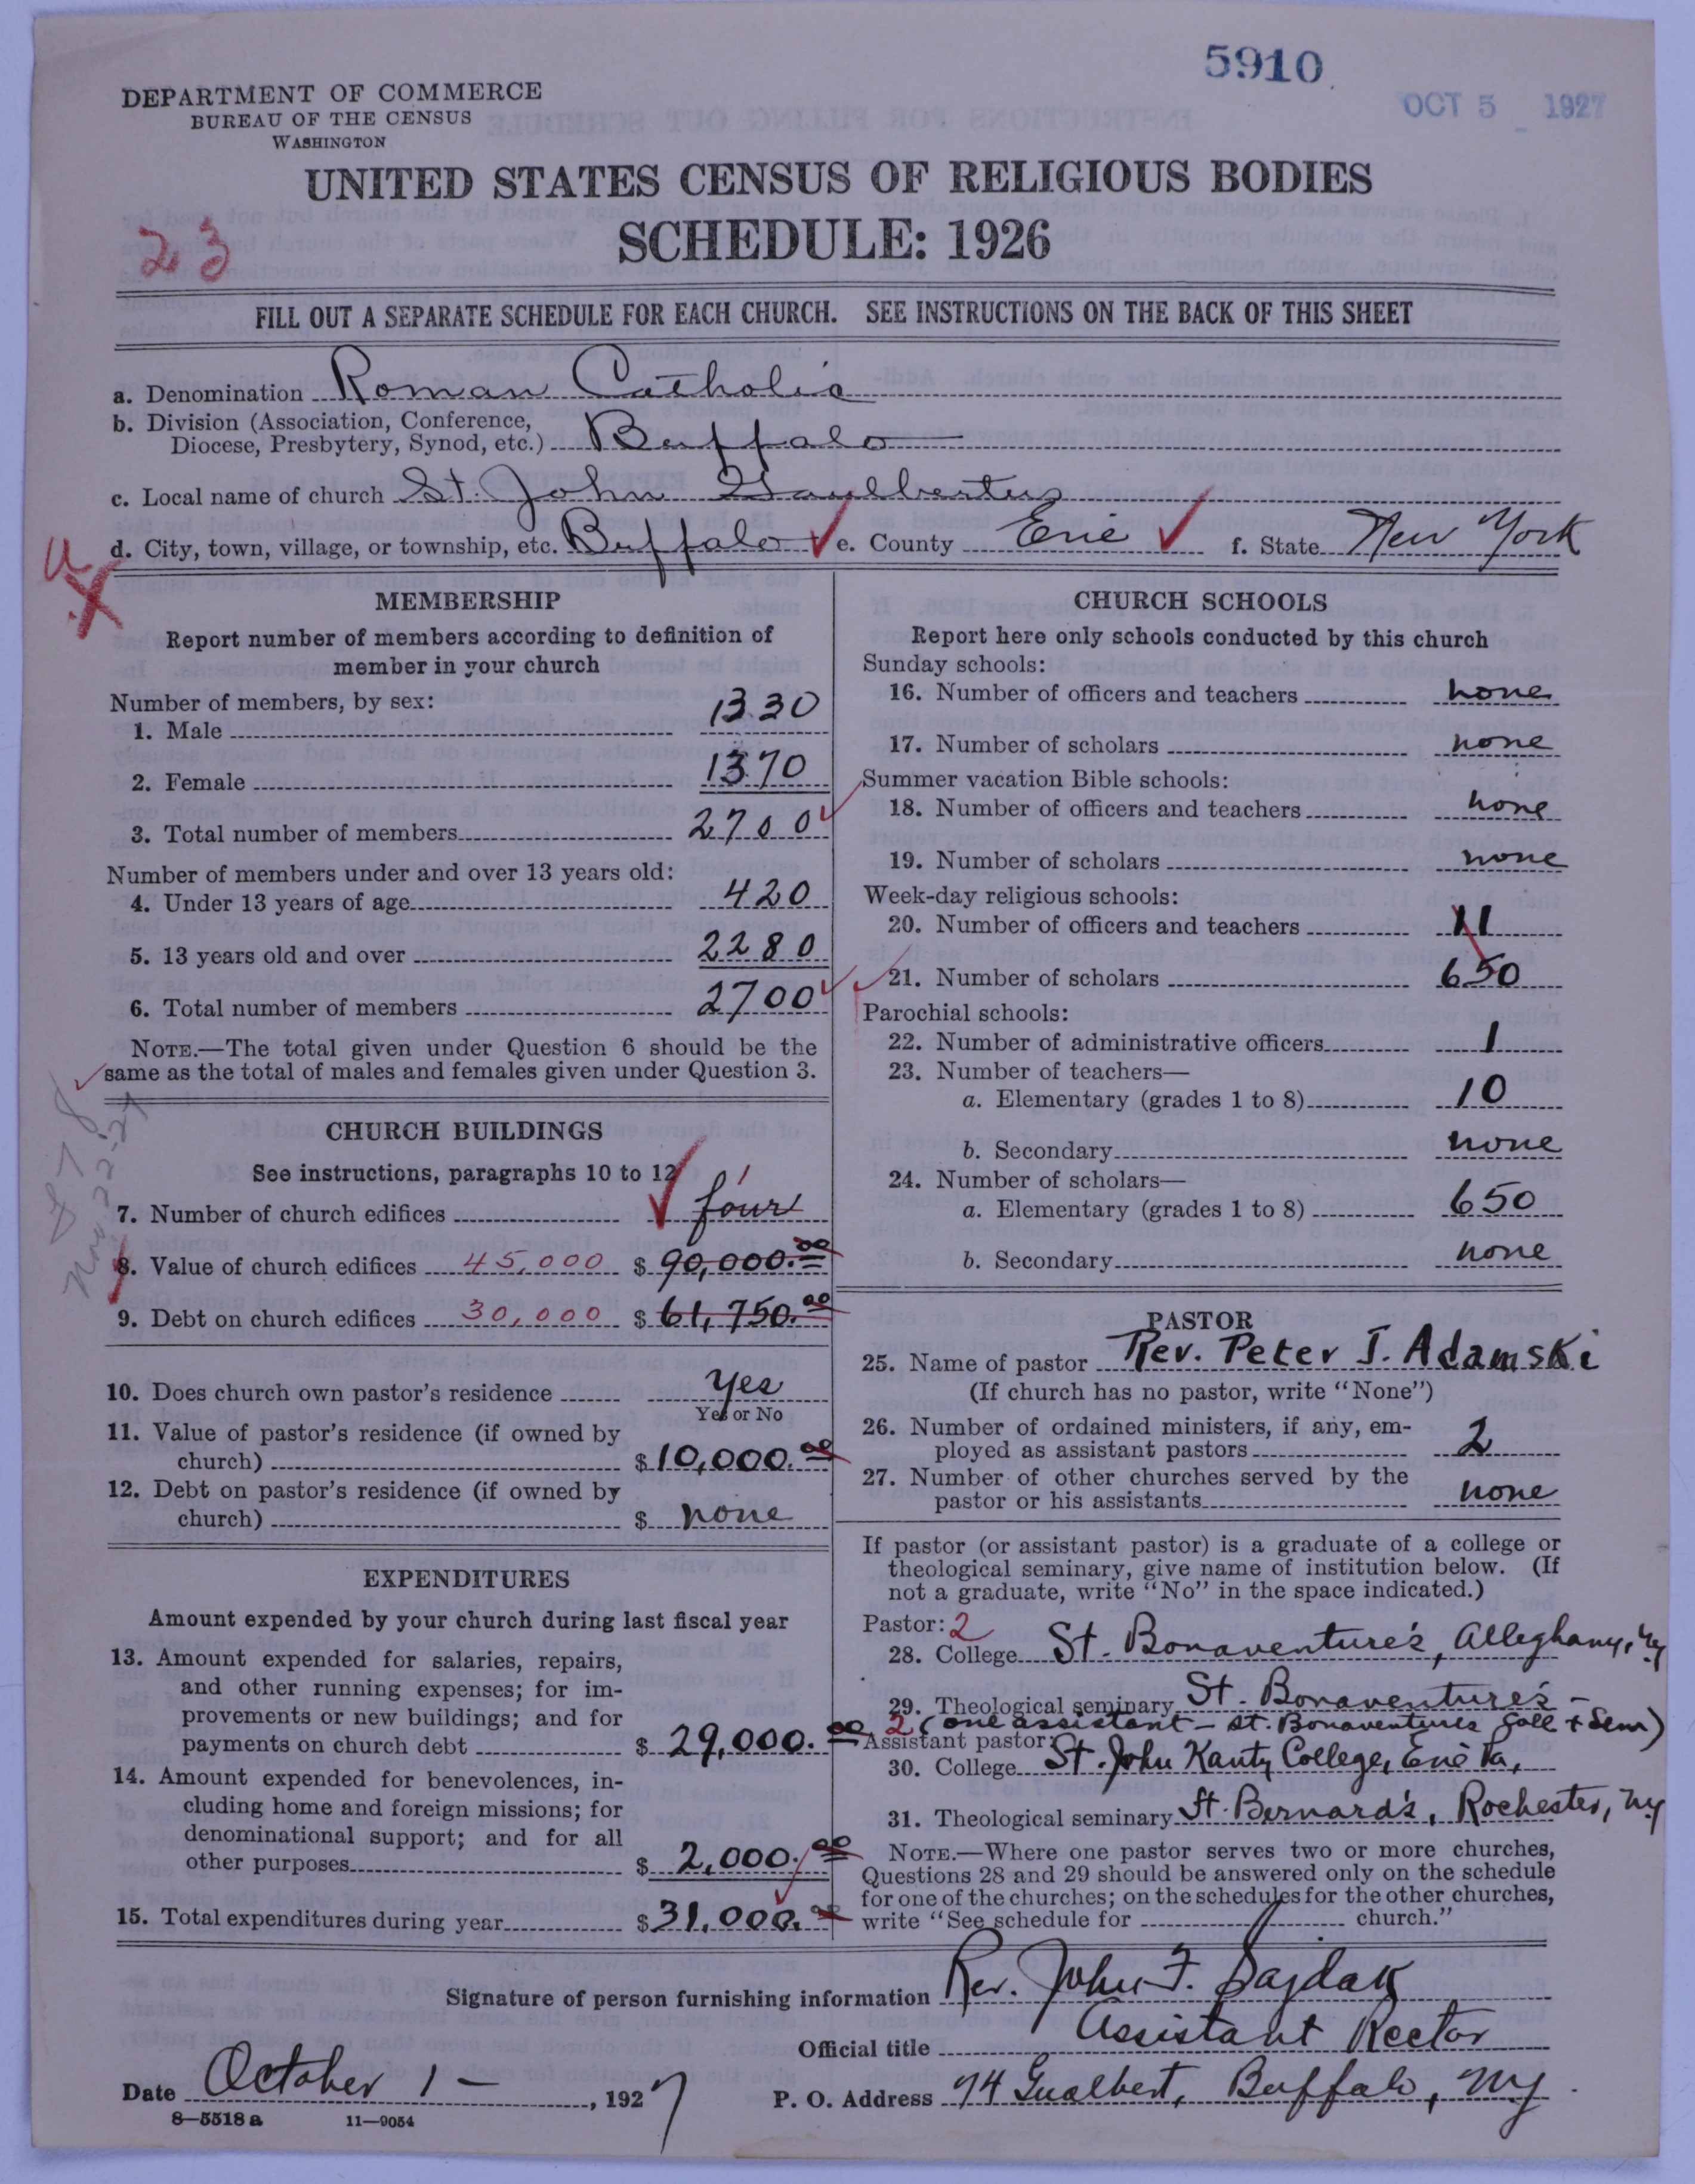 5910
OCT 5 1927
DEPARTMENT OF COMMERCE
BUREAU OF THE CENSUS
WASHINGTON
UNITED STATES CENSUS OF RELIGIOUS BODIES
SCHEDULE: 1926
23
FILL OUT A SEPARATE SCHEDULE FOR EACH CHURCH. SEE INSTRUCTIONS ON THE BACK OF THIS SHEET
a. Denomination Roman Catholic
b. Division (Association, Conference,
Diocese, Presbytery, Synod, etc.) Buffalo
c. Local name of church St. John Gaulbertus
d. City, town, village, or township, etc. Buffalo e. County Erie f. State New York
MEMBERSHIP
Report number of members according to definition of
member in your church
Number of members, by sex:
1. Male 1330
2. Female 1370
3. Total number of members 2700
Number of members under and over 13 years old:
4. Under 13 years of age 420
5. 13 years old and over 2280
6. Total number of members 2700
NOTE.—The total given under Question 6 should be the
same as the total of males and females given under Question 3.
CHURCH BUILDINGS
See instructions, paragraphs 10 to 12
7. Number of church edifices four 1
8. Value of church edifices 45,000 $ 90,000.00
9. Debt on church edifices 30,000 $ 61,750.00
10. Does church own pastor's residence yes
Yes or No
11. Value of pastor's residence (if owned by
church) $ 10,000.00
12. Debt on pastor's residence (if owned by
church) $ none
EXPENDITURES
Amount expended by your church during last fiscal year
13. Amount expended for salaries, repairs,
and other running expenses; for im-
provements or new buildings; and for
payments on church debt $ 29,000.00
14. Amount expended for benevolences, in-
cluding home and foreign missions; for
denominational support; and for all
other purposes $ 2,000.00
15. Total expenditures during year $ 31,000.00
Nov 22-27
CHURCH SCHOOLS
Report here only schools conducted by this church
Sunday schools:
16. Number of officers and teachers none
17. Number of scholars none
Summer vacation Bible schools:
18. Number of officers and teachers none
19. Number of scholars none
Week-day religious schools:
20. Number of officers and teachers 11
21. Number of scholars 650
Parochial schools:
22. Number of administrative officers 1
23. Number of teachers—
a. Elementary (grades 1 to 8) 10
b. Secondary none
24. Number of scholars—
a. Elementary (grades 1 to 8) 650
b. Secondary none
PASTOR
25. Name of pastor Rev. Peter J. Adamski
(If church has no pastor, write "None")
26. Number of ordained ministers, if any, em-
ployed as assistant pastors 2
27. Number of other churches served by the
pastor or his assistants none
If pastor (or assistant pastor) is a graduate of a college or
theological seminary, give name of institution below. (If
not a graduate, write "No" in the space indicated.)
Pastor: 2
28. College St. Bonaventure's, Alleghany, Ny
29. Theological seminary St. Bonaventure's -
2 (one assistant - St. Bonaventures Coll + Sem)
Assistant pastor:
30. College St. John Kanty College, Erie Pa,
31. Theological seminary St. Bernard's, Rochester, Ny
NOTE.—Where one pastor serves two or more churches,
Questions 28 and 29 should be answered only on the schedule
for one of the churches; on the schedules for the other churches,
write "See schedule for church."
Signature of person furnishing information Rev. John F. Sajdak
Official title Assistant Rector
Date October 1 - , 1927 P. O. Address 74 Gualbert, Buffalo, Ny.
8—5518 a 11—9054